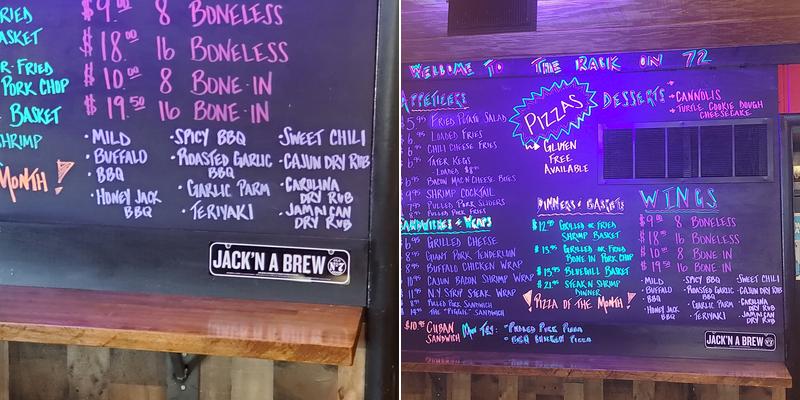 RIED
$9.00 8 BONELESS
ASKET
$18.00 16 BONELESS
R-FRIED
$10.00 8 BONE-IN
PORK CHOP
$19.50 16 BONE-IN
BASKET
SHRIMP
MONTH!
·MILD ·SPICY BBQ ·SWEET CHILI
·BUFFALO ·ROASTED GARLIC BBQ ·CAJUN DRY RUB
·BBQ ·GARLIC PARM ·CAROLINA DRY RUB
·HONEY JACK BBQ ·TERIYAKI ·JAMAICAN DRY RUB
JACK'N A BREW
WELCOME TO THE RACK ON 72
APPETIZERS
FRIED POTATO SALAD
LOADED FRIES
CHILI CHEESE FRIES
TATER KEGS
LOADED
BACON MAC N CHEESE BITES
SHRIMP COCKTAIL
PULLED PORK SLIDERS
PULLED PORK FRIES
SANDWICHES & WRAPS
GRILLED CHEESE
GIANT PORK TENDERLOIN
BUFFALO CHICKEN WRAP
CAJUN BACON SHRIMP WRAP
N.Y. STRIP STEAK WRAP
THE "PIGGIE" SANDWICH
$10.95 CUBAN SANDWICH
PIZZAS
GLUTEN
FREE
AVAILABLE
DESSERTS
CANNOLIS
TURTLE COOKIE DOUGH
CHEESECAKE
DINNERS & BASKETS
GRILLED OR FRIED
SHRIMP BASKET
GRILLED-OR-FRIED
BONE IN PORK CHOP
BLUEGILL BASKET
STEAK N SHRIMP
DINNER
!PIZZA OF THE MONTH!
"PULLED PORK PIZZA
WINGS
$9.00 8 BONELESS
$18.00 16 BONELESS
$10.00 8 BONE IN
$19.50 16 BONE-IN
·MILD ·SPICY BBQ ·SWEET CHILI
·BUFFALO ·ROASTED GARLIC BBQ ·CAJUN DRY RUB
·BBQ ·GARLIC PARM ·CAROLINA DRY RUB
·HONEY JACK BBQ ·TERIYAKI ·JAMAICAN DRY RUB
JACK'N A BREW